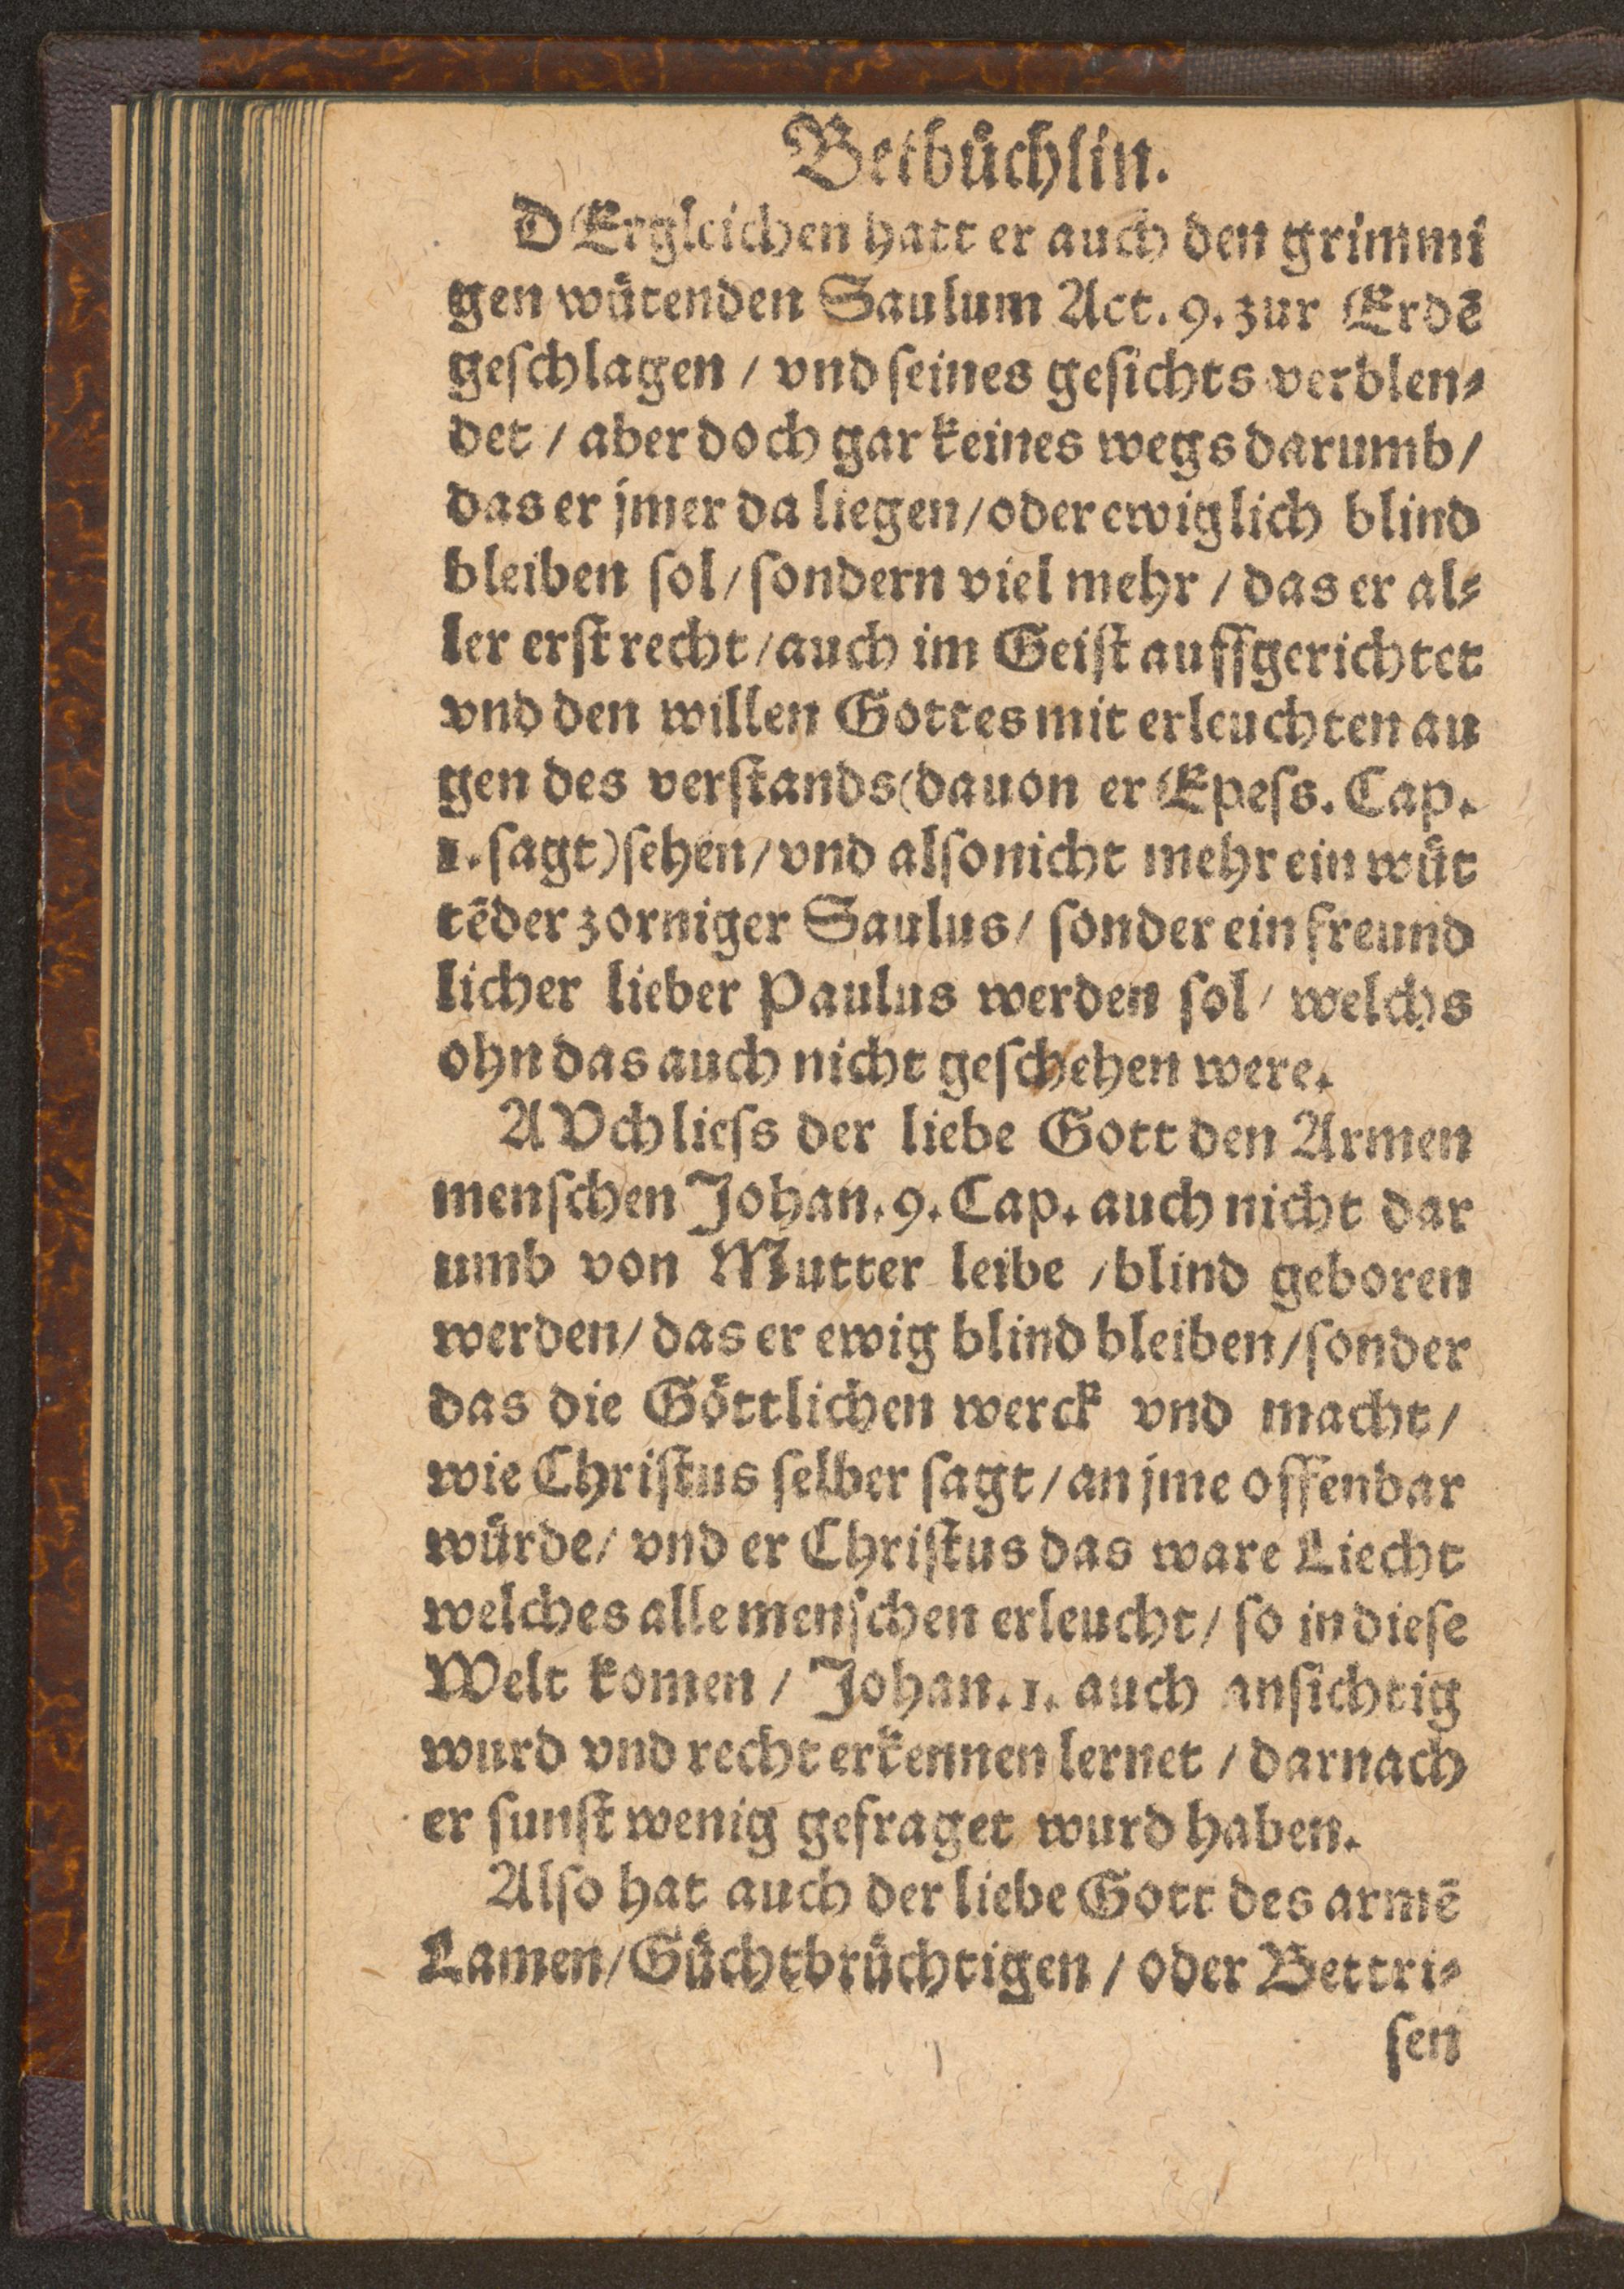 Betbuͤchlin.
DErgleichen hatt er auch den grimmi
gen wuͤtenden Saulum Act. 9. zur Erdē
geſchlagen / vnd ſeines geſichts verblen⸗
det / aber doch gar keines wegs darumb /
das er jmer da liegen / oder ewiglich blind
bleiben ſol / ſondern viel mehr / das er al⸗
ler erſt recht / auch im Geiſt auffgerichtet
vnd den willen Gottes mit erleuchten au
gen des verſtands (dauon er Epeſs. Cap.
1. ſagt) ſehen / vnd alſo nicht mehr ein wuͤt
tēder zorniger Saulus / ſonder ein freund
licher lieber Paulus werden ſol / welchs
ohn das auch nicht geſchehen were.
AVch lieſs der liebe Gott den Armen
menſchen Johan. 9. Cap. auch nicht dar
umb von Mutter leibe / blind geboren
werden / das er ewig blind bleiben / ſonder
das die Goͤttlichen werck vnd macht /
wie Chriſtus ſelber ſagt / an jme offenbar
wuͤrde / vnd er Chriſtus das ware Liecht
welches alle menſchen erleucht / ſo in dieſe
Welt komen / Johan. 1. auch anſichtig
wurd vnd recht erkennen lernet / darnach
er ſunſt wenig gefraget wurd haben.
Alſo hat auch der liebe Gott des armē
Lamen / Guͤchtbruͤchtigen / oder Bettri⸗
ſen